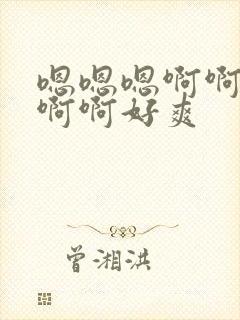 嗯嗯嗯啊啊
啊啊好爽
曾湘洪